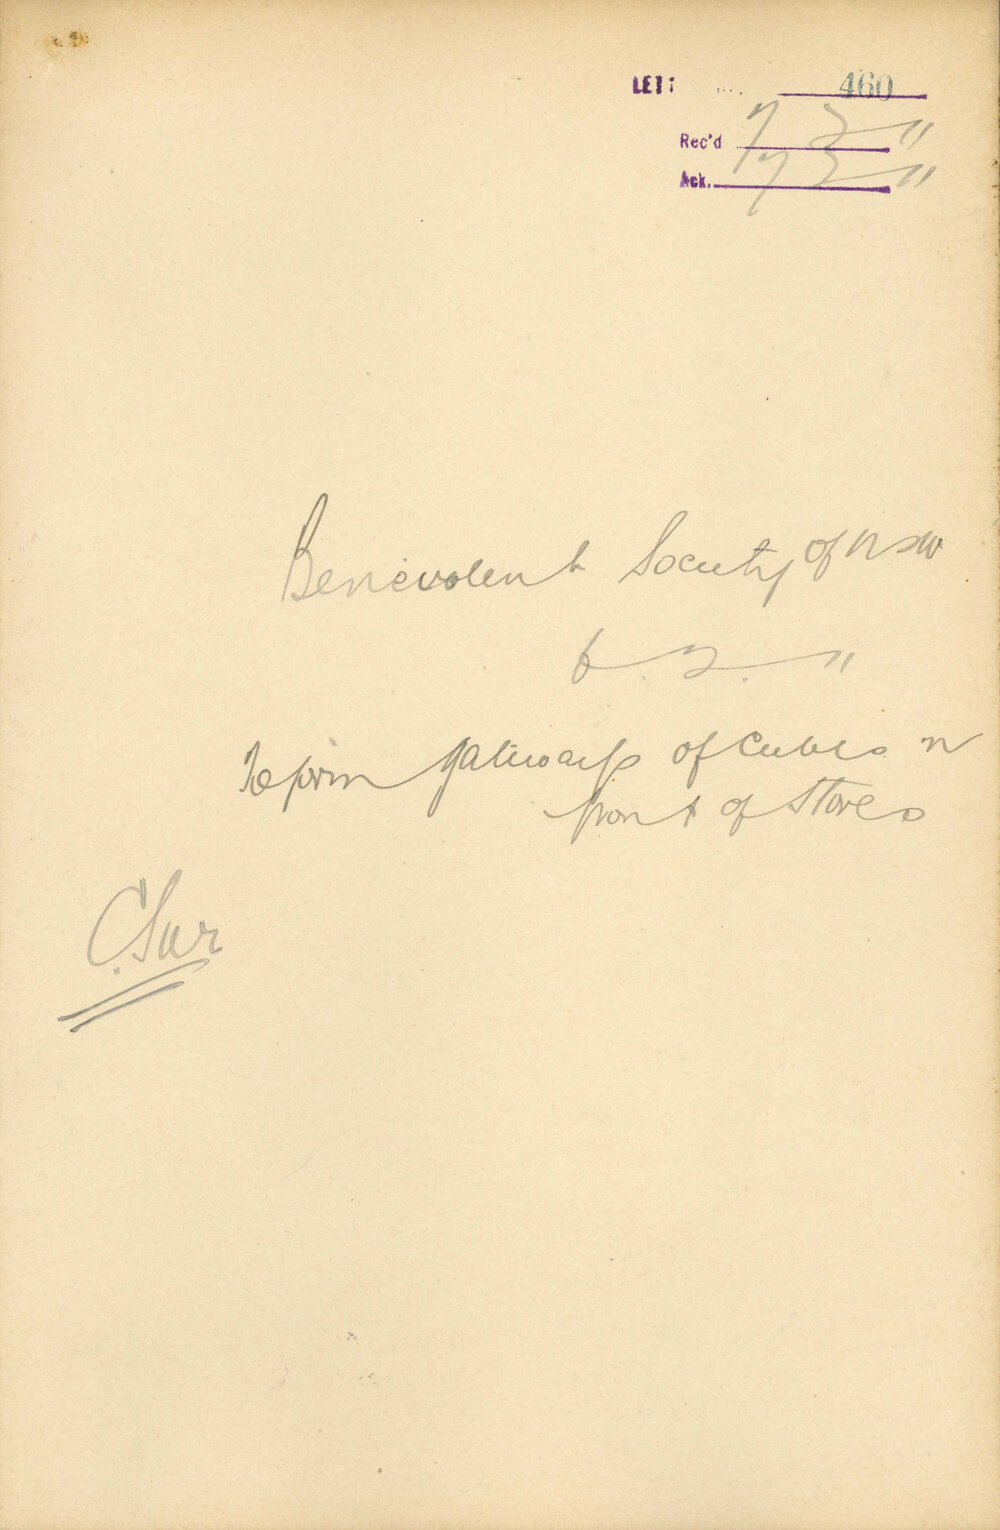 LET: 460
Rec'd 7 3 "
Ack. 7 3 "
Benevolent Society of NSW
6 . 3 . "
Re forming gateways of Cubes in
front of Stores
C. Sur